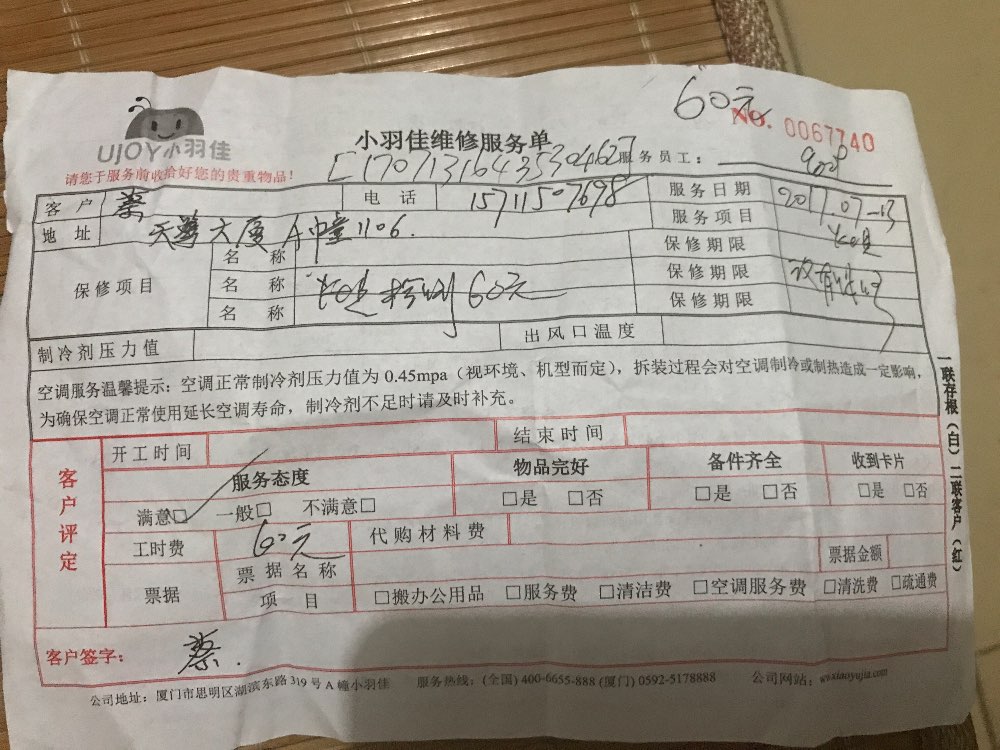 60元
NO. 0067740
UJOY小羽佳
小羽佳维修服务单
请您于服务前收拾好您的贵重物品!
[1707131643530462] 服务员工:
客户 蔡 电话 15711507698 服务日期 2017.07-13
地址 天鹭大厦A中堂1106. 服务项目
保修项目 名称 保修期限
名称 检测60元 保修期限
名称 保修期限
制冷剂压力值 出风口温度
空调服务温馨提示:空调正常制冷剂压力值为 0.45mpa(视环境、机型而定),拆装过程会对空调制冷或制热造成一定影响,
为确保空调正常使用延长空调寿命,制冷剂不足时请及时补充。
一联存根(白)二联客户(红)
客户评定
开工时间 结束时间
服务态度 物品完好 备件齐全 收到卡片
满意□ 一般□ 不满意□ □是 □否 □是 □否 □是 □否
工时费 60元 代购材料费
票据 票据名称 票据金额
项目 □搬办公用品 □服务费 □清洁费 □空调服务费 □清洗费 □疏通费
客户签字: 蔡.
公司地址:厦门市思明区湖滨东路319号A幢小羽佳 服务热线:(全国) 400-6655-888 (厦门) 0592-5178888 公司网站:www.xiaoyujia.com